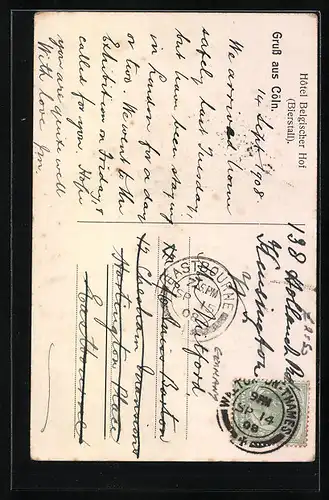 Hôtel Belgischer Hof
(Bierstall).
Gruß aus Cöln.
14 Sept 1908
We arrived home
safely last Tuesday,
but have been staying
in London for a day
or two. We went to the
Exhibition on Friday, &
called for you. Hope
you are quite well
With love
138 Holland
Kensington
W.
Watford
Chesham
Hartington Place
Eastbourne
GERMANY
EASTBOURNE
7.15 PM
SP
08
WALTON-ON-THAMES
9 AM
SP 14
08